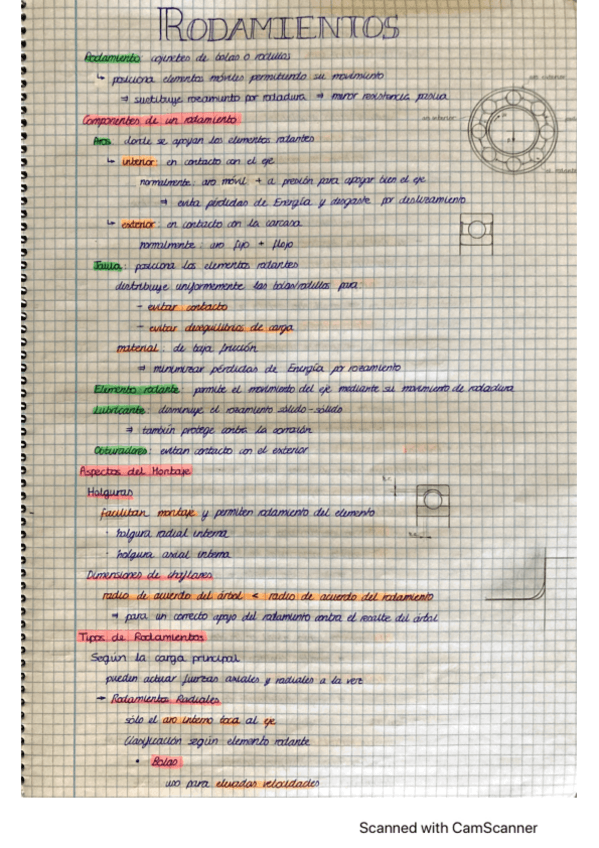 RODAMIENTOS
Rodamiento: cojinetes de bolas o rodillos
↳ posiciona elementos móviles permitiendo su movimiento
⇒ sustituye rozamiento por rodadura ⇒ menor resistencia pasiva
aro exterior
Componentes de un rodamiento
aro interior
Aros: donde se apoyan los elementos rodantes
↳ interior: en contacto con el eje
normalmente: aro móvil + a presión para apoyar bien el eje
⇒ evita pérdidas de Energía y desgaste por deslizamiento
↳ exterior: en contacto con la carcasa
normalmente: aro fijo + flojo
Jaula: posiciona los elementos rodantes
distribuye uniformemente las bolas/rodillos para
- evitar contacto
- evitar desequilibrios de carga
material: de baja fricción
⇒ minimizar pérdidas de Energía por rozamiento
Elemento rodante: permite el movimiento del eje mediante su movimiento de rodadura
Lubricante: disminuye el rozamiento sólido-sólido
⇒ también protege contra la corrosión
Obturadores: evitan contacto con el exterior
Aspectos del Montaje
Holguras
facilitan montaje y permiten rodamiento del elemento
· holgura radial interna
· holgura axial interna
Dimensiones de chaflanes
radio de acuerdo del árbol < radio de acuerdo del rodamiento
⇒ para un correcto apoyo del rodamiento contra el resalte del árbol
Tipos de Rodamientos
Según la carga principal
pueden actuar fuerzas axiales y radiales a la vez
→ Rodamientos Radiales
sólo el aro interno toca al eje
Clasificación según elemento rodante
• Bolas
uso para elevadas velocidades
Scanned with CamScanner